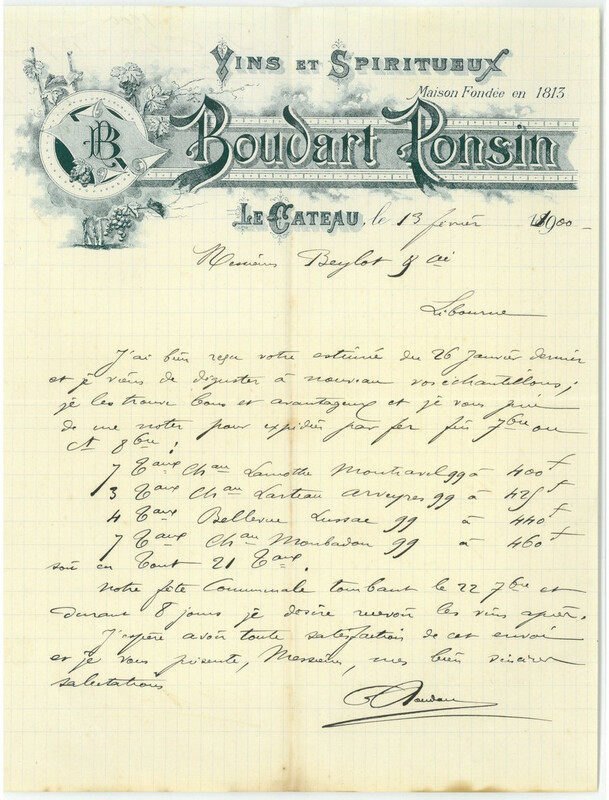 Vins et Spiritueux
Maison Fondée en 1813
PB
Boudart Ponsin
Le Cateau, le 13 février 1900
Messieurs Beylot & Cie
Libourne
J'ai bien reçu votre estimée du 26 Janvier dernier
et je viens de déguster à nouveau vos échantillons;
je les trouve bons et avantageux et je vous prie
de me noter pour expédier par fer fin 7bre ou
Ct 8bre:
7 Tx Chau Lamothe Montravel 99 à 400f
3 Tx Chau Lasteau Arveyres 99 à 425f
4 Tx Bellevue Lussac 99 à 440f
7 Tx Chau Monbadon 99 à 460f
soit en Tout 21 Tx.
Notre fête Communale tombant le 22 7bre et
durant 8 jours je désire recevoir les vins après.
J'espère avoir toute satisfaction de cet envoi
et je vous présente, Messieurs, mes bien sincères
salutations